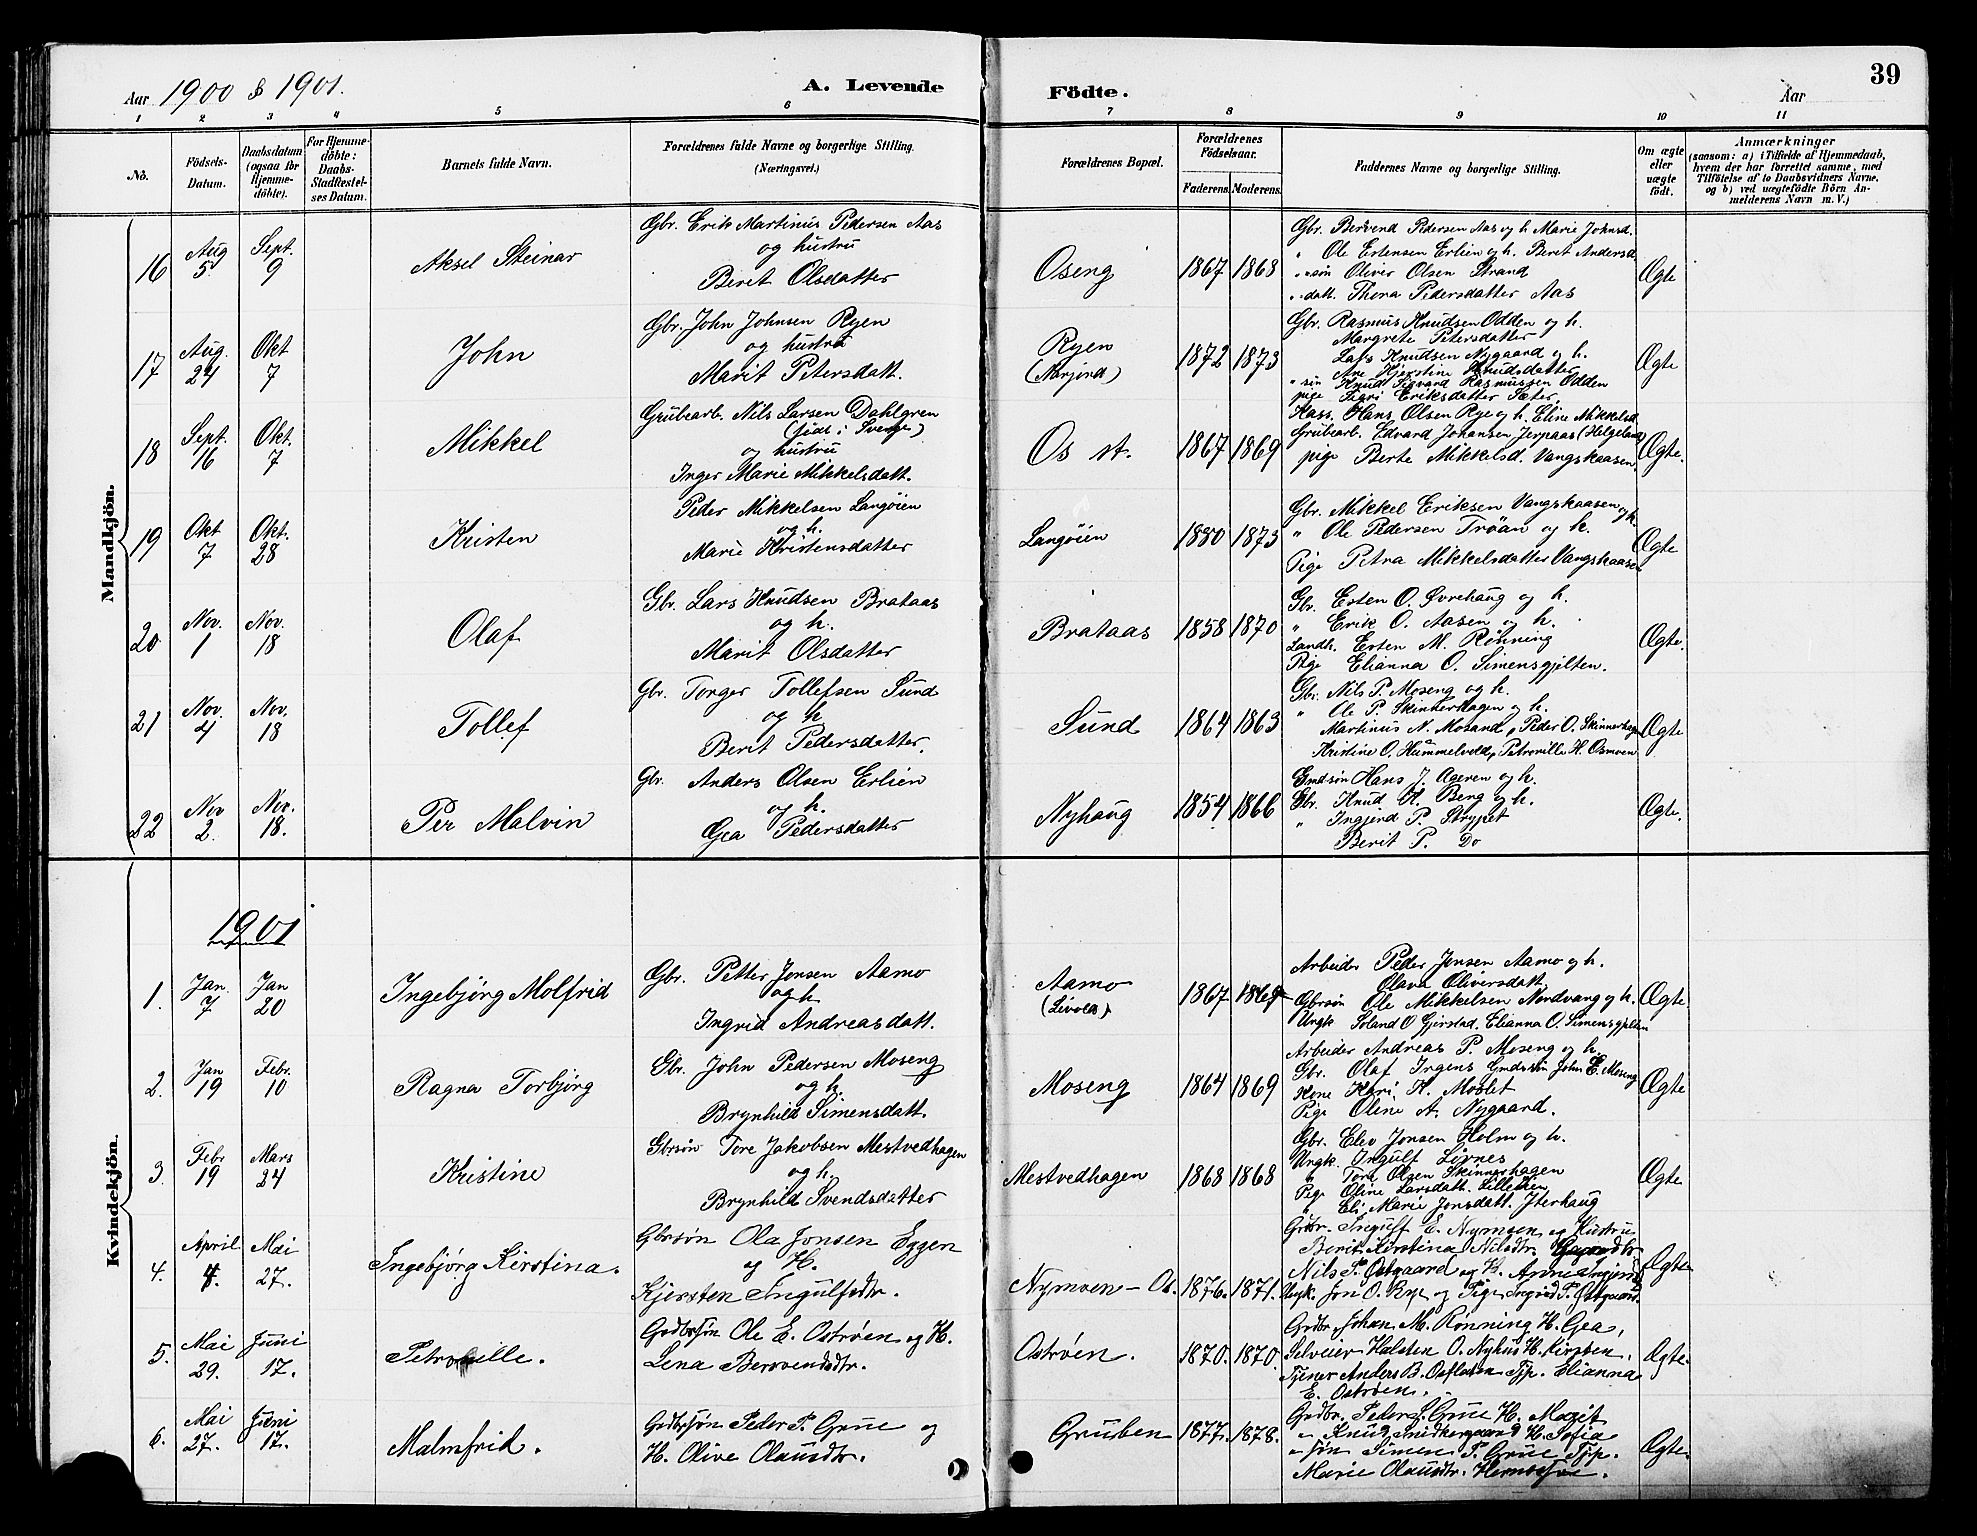 39
Aar 1900 & 1901.
A. Levende Födte.
Aar
1 2 3 4 5 6 7 8 9 10 11
No.
Födsels-Datum.
Daabsdatum (ogsaa for Hjemme-döbte).
For Hjemme-döbte: Daabs-Stadfæstel-ses Datum.
Barnets fulde Navn.
Forældrenes fulde Navne og borgerlige Stilling. (Næringsvei.)
Forældrenes Bopæl.
Forældrenes Födselsaar.
Faderens. Moderens.
Faddernes Navne og borgerlige Stilling.
Om ægte eller uægte født.
Anmærkninger (saasom: a) i Tilfælde af Hjemmedaab, hvem der har forrettet samme, med Tilföielse af to Daabsvidners Navne, og b) ved uægtefödte Börn Anmelderens Navn m. V.)
Mandkjön.
16 Aug 5 Sept. 9 Aksel Steinar
Gbr. Erik Martinus Pedersen Aas
og hustru
Berit Olsdatter
Oseng 1867 1868
Gbr. Bersvend Pedersen Aas og h. Marie Johnsd.
" Ole Estensen Erlien og h. Berit Andersd
" søn Oliver Olsen Strand
" datt. Thora Pedersdatter Aas
Ægte
17 Aug. 24 Okt 7 John
Gbr. John Johnsen Ryen
og hustru
Marit Petersdatt.
Ryen
(Narjord) 1872 1873
Gbr. Rasmus Knudsen Odden og h.
Margrete Petersdatter
Lars Knudsen Nygaard og h.
Ane Kjerstine Knudsdatter
" søn Knud Sigvard Rasmussen Odden
pige Sigri Eriksdatter Sæter
Ægte
18 Sept. 16 Okt. 7 Mikkel
Grubearb. Nils Larsen Dahlgren
(født i Sverige)
og hustru
Inger Marie Mikkelsdatt.
Os st. 1867 1869
Huss. Hans Olsen Rye og h. Eline Mikkelsd
Grubearb. Edvard Johansen Jerpaas (Helgeland)
pige Berte Mikkelsd. Vangskaasen
Ægte.
19 Okt 7 Okt. 28 Kristen
Peder Mikkelsen Langøien
og h.
Marie Kristensdatter
Langøien 1880 1873
Gbr. Mikkel Eriksen Vangskaasen og h.
" Ole Pedersen Trøan og h.
Pige Petra Mikkelsdatter Vangskaasen
Ægte
20 Nov. 1 Nov. 18 Olaf
Gbr. Lars Knudsen Brataas
og h.
Marit Olsdatter
Brataas 1858 1870
Gbr. Esten O. Øvrehaug og h.
" Erik O. Aasen og h.
Landh. Esten M. Rønning
Pige Elianna O. Simensgjelten.
Ægte.
21 Nov. 4 Nov. 18 Tollef
Gbr. Torger Tollefsen Sund
og h
Berit Pedersdatter
Sund 1864 1863
Gbr. Nils P. Moseng og h.
" Ole P. Skinnerhagen og h.
Martinus N. Mosand, Peder O. Skinnerhagen
Kristine O. Hummelvold, Petroville H. Osmoen
Ægte
22 Nov 2. Nov. 18. Per Malvin
Gbr. Anders Olsen Erlien
og h.
Gea Pedersdatter
Nyhaug 1854 1866
Gmdsøn Hans J. Ageren og h.
Gbr. Knud H. Berg og h.
" Ingjerd P. Strypet
Berit P. Do
Ægte.
Kvindekjön.
1901
1. Jan. 7 Jan 20 Ingebjørg Molfrid
Gbr. Petter Jonsen Aamo
og h
Ingrid Andreasdatt.
Aamo
1867 1869
Arbeider Peder Jonsen Aamo og h.
Olava Oliversdatt
Gbrsøn Ole Mikkelsen Nordvang og h.
Ungk. O Gjerstad. Elianna O. Simensgjelten
Ægte
2. Jan 19 Febr. 10 Ragna Torbjørg
Gbr. John Pedersen Moseng
og h
Brynhild Simensdatt.
Moseng 1864 1869
Arbeider Andreas P. Moseng og h.
Gbr. Olaf Irgens Gmdssøn John E. Moseng
Kone Kari H. Moslet
Pige Oline A. Nygaard.
Ægte
3. Febr 19 Mars 24 Kristine
Gbrsøn Tore Jakobsen Mestvedhagen
og h.
Brynhild Svendsdatter
Mestvedhagen 1868 1868
Gbr. Elev Jonsen Holm og h.
Ungk. Ingulf Livnes
" Tore Olsen Skinnerhagen
Pige Oline Larsdatt. Lillelien
" Eli Marie Jonsdatt. Ytterhaug
Ægte
4. April 4. Mai 27. Ingebjørg Kirstina.
Gbrsøn Ola Jonsen Eggen
og H.
Kjersten Ingulfsdtr.
Nymoen - Os. 1876. 1871.
Grdbr. Ingulf E. Nymoen og Hustru
Berit Kirstina Nilsdtr.
Nils P. Østgaard og H. Anne Ingjerd
Ungk. Jon O. Rye og Pige Ingrid P. Østgaard.
Ægte
5. Mai 29. Juni 17. Petroville.
Grdbrsøn Ole E. Ostrøen og H.
Lena Bersvendsdtr.
Ostrøen. 1870. 1870.
Grdbr. Johan M. Rønning H. Gea,
Selveier Halsten O. Nyhus H. Kirsten.
Tjener Anders B. Osfloten Tjp. Elianna
E. Ostrøen.
Ægte.
6. Mai 27. Juni 17. Malmfrid.
Grdbrsøn Peder P. Grue og
H. Olive Olausdtr.
Gruben 1877. 1878.
Grdbr. Peder S. Grue H. Marit
" Knud Snidkergaard H. Sofia
" søn Simen P. Grue Tjp.
Marie Olausdtr.
Ægte.